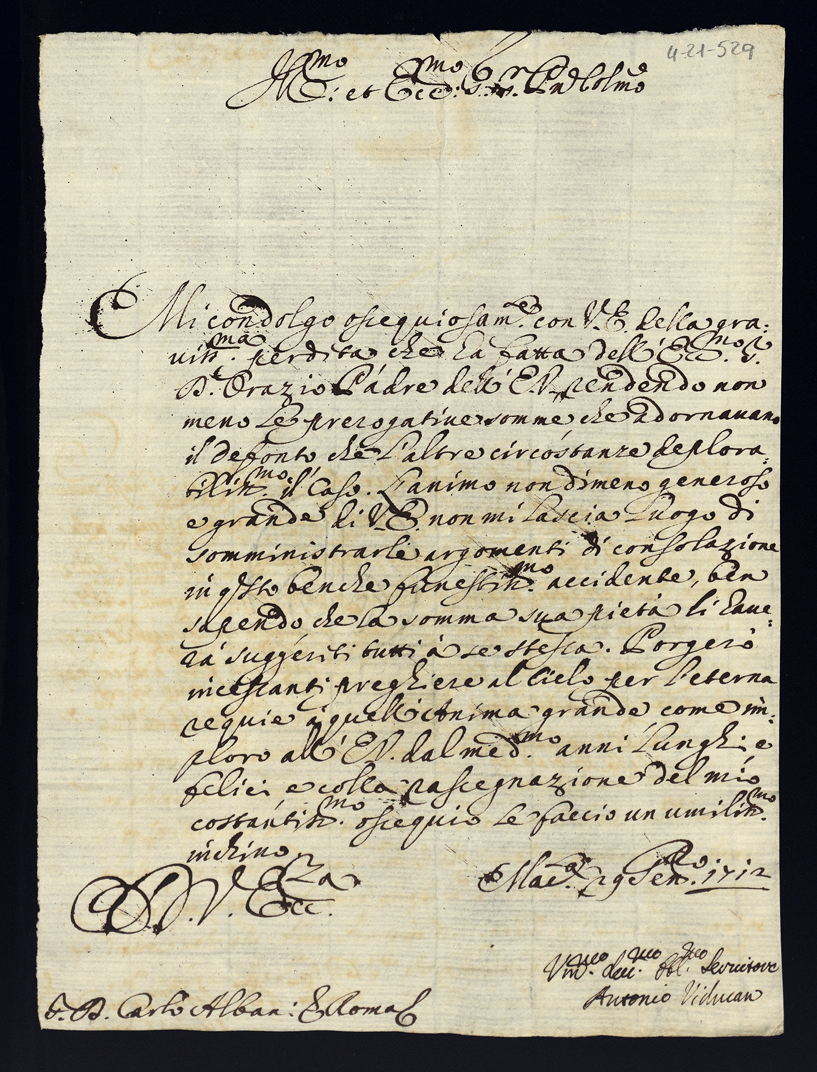 4-21-529
Ill.mo et Ecc.mo S.r S.r Pñ Colmo
Mi condolgo ossequiosam.te con V.E. della gra:
uiss.ma perdita che hà fatta dell'Ecc.mo S.
D. Orazio Padre dell'E.V. rendendo non
meno le prerogatiue somme che adornauano
il defonto che l'altre circostanze deplora:
biliss.mo il Caso. L'animo nondimeno generoso
e grande di V.E. non mi lascia luogo di
somministrarle argomenti di consolazione
in q̃sto benche funestiss.mo accidente, ben
sapendo che la somma sua pietà li haue:
rà suggeriti tutti à se stessa. Porgerò
incessanti preghiere al Cielo per l'eterna
requie à quell'Anima grande come im:
ploro all'E.V. dal med.mo anni lunghi e
felici e colla rassegnazione del mio
costantiss.mo ossequio le faccio un umiliss.mo
inchino
D. V. Ecc.za
Mac.a 29 Gen.ro 1712
Um.mo deu.mo obl.mo Seruitore
Antonio Viducan
S. D. Carlo Albani Roma